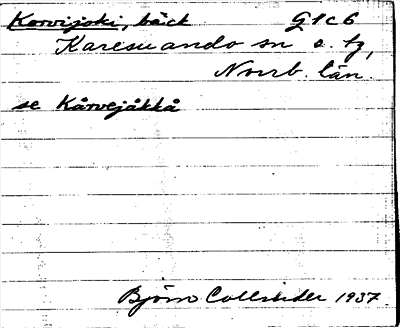 Korvijoki, bäck G1c6
Karesuando sn o. tg,
Norrb. län.
se Kårvejåkkå
Björn Collinder 1937